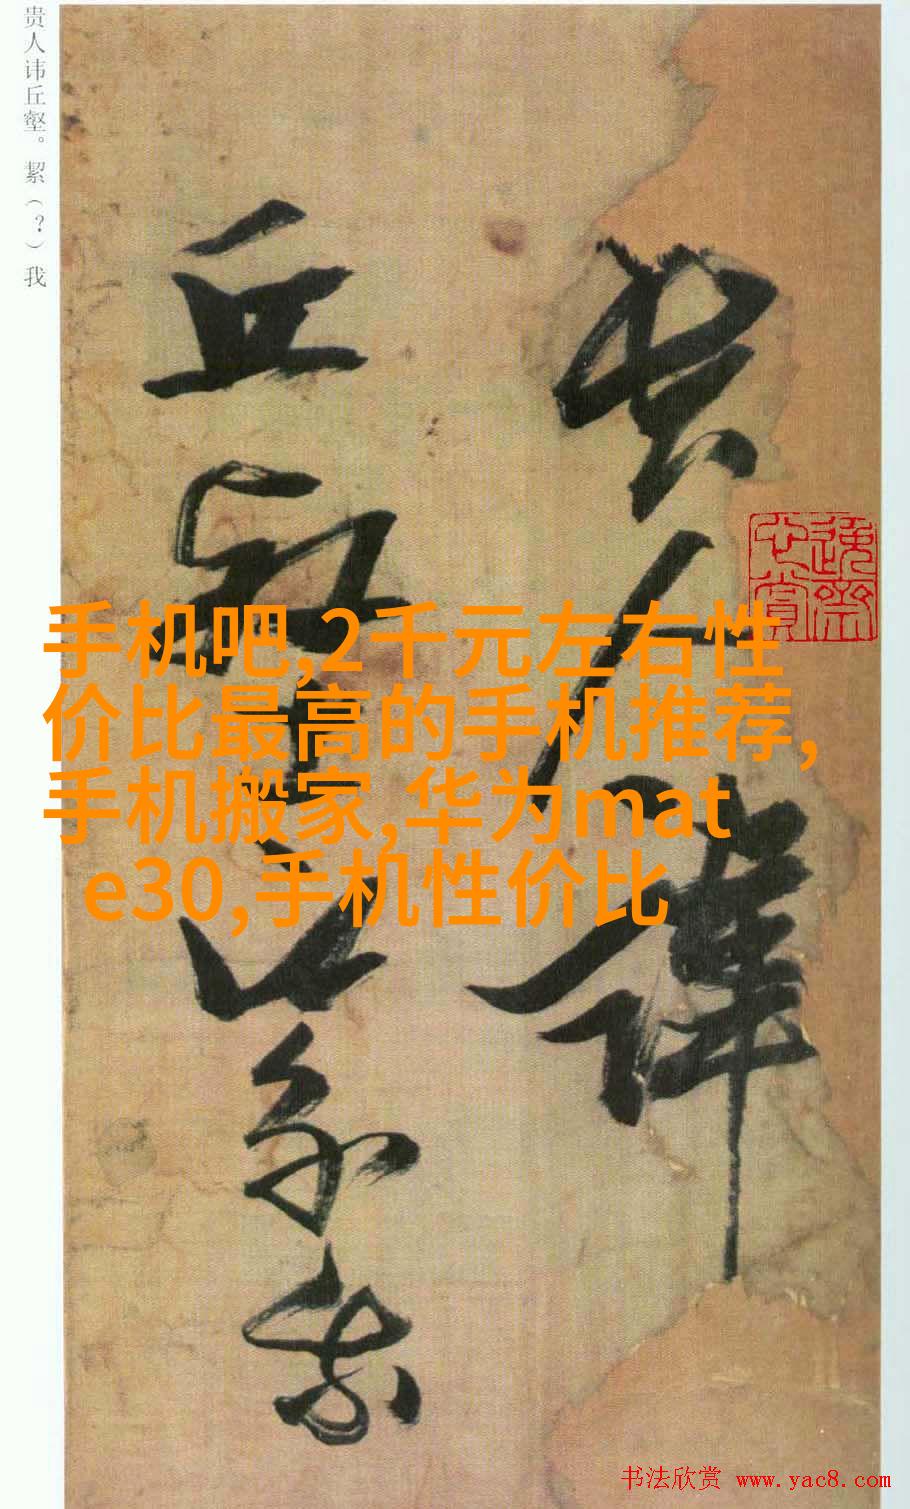 贵人讳丘壑。絜（？）我
贵人讳
丘壑
絜我
手机吧,2千元左右性
价比最高的手机推荐,
手机搬家,华为mat
e30,手机性价比
书法欣赏 www.yac8.com